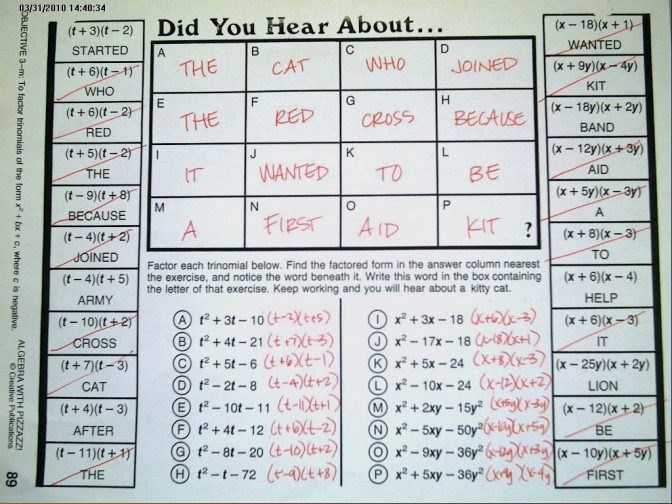 03/31/2010 14:40:34
Did You Hear About...
OBJECTIVE 3-m: To factor trinomials of the form x² + bx + c, where c is negative.
ALGEBRA WITH PIZZAZZ!
© Creative Publications
89
(t + 3)(t − 2)
STARTED
(t + 6)(t − 1)
WHO
(t + 6)(t − 2)
RED
(t + 5)(t − 2)
THE
(t − 9)(t + 8)
BECAUSE
(t − 4)(t + 2)
JOINED
(t − 4)(t + 5)
ARMY
(t − 10)(t + 2)
CROSS
(t + 7)(t − 3)
CAT
(t + 4)(t − 3)
AFTER
(t − 11)(t + 1)
THE
A THE
B CAT
C WHO
D JOINED
E THE
F RED
G CROSS
H BECAUSE
I IT
J WANTED
K TO
L BE
M A
N FIRST
O AID
P KIT ?
Factor each trinomial below. Find the factored form in the answer column nearest
the exercise, and notice the word beneath it. Write this word in the box containing
the letter of that exercise. Keep working and you will hear about a kitty cat.
A t² + 3t − 10 (t-2)(t+5)
B t² + 4t − 21 (t+7)(t-3)
C t² + 5t − 6 (t+6)(t-1)
D t² − 2t − 8 (t-4)(t+2)
E t² − 10t − 11 (t-11)(t+1)
F t² + 4t − 12 (t+6)(t-2)
G t² − 8t − 20 (t-10)(t+2)
H t² − t − 72 (t-9)(t+8)
I x² + 3x − 18 (x+6)(x-3)
J x² − 17x − 18 (x-18)(x+1)
K x² + 5x − 24 (x+8)(x-3)
L x² − 10x − 24 (x-12)(x+2)
M x² + 2xy − 15y² (x+5y)(x-3y)
N x² − 5xy − 50y² (x-10y)(x+5y)
O x² − 9xy − 36y² (x-12y)(x+3y)
P x² + 5xy − 36y² (x+9y)(x-4y)
(x − 18)(x + 1)
WANTED
(x + 9y)(x − 4y)
KIT
(x − 18y)(x + 2y)
BAND
(x − 12y)(x + 3y)
AID
(x + 5y)(x − 3y)
A
(x + 8)(x − 3)
TO
(x + 6)(x − 4)
HELP
(x + 6)(x − 3)
IT
(x − 25y)(x + 2y)
LION
(x − 12)(x + 2)
BE
(x − 10y)(x + 5y)
FIRST